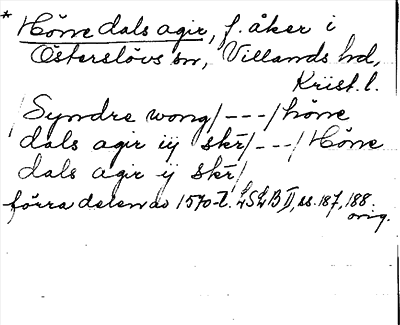 * Hörre dals agir, f. åker i
Österslövs sn, Villands hd,
Krist. l.
/Syndre wong/---/hörre
dals agir iij skr̄/---/Hörre
dals agir ij skr̄/
förra delen av 1570-t. LSLB II, ss. 187, 188.
orig.